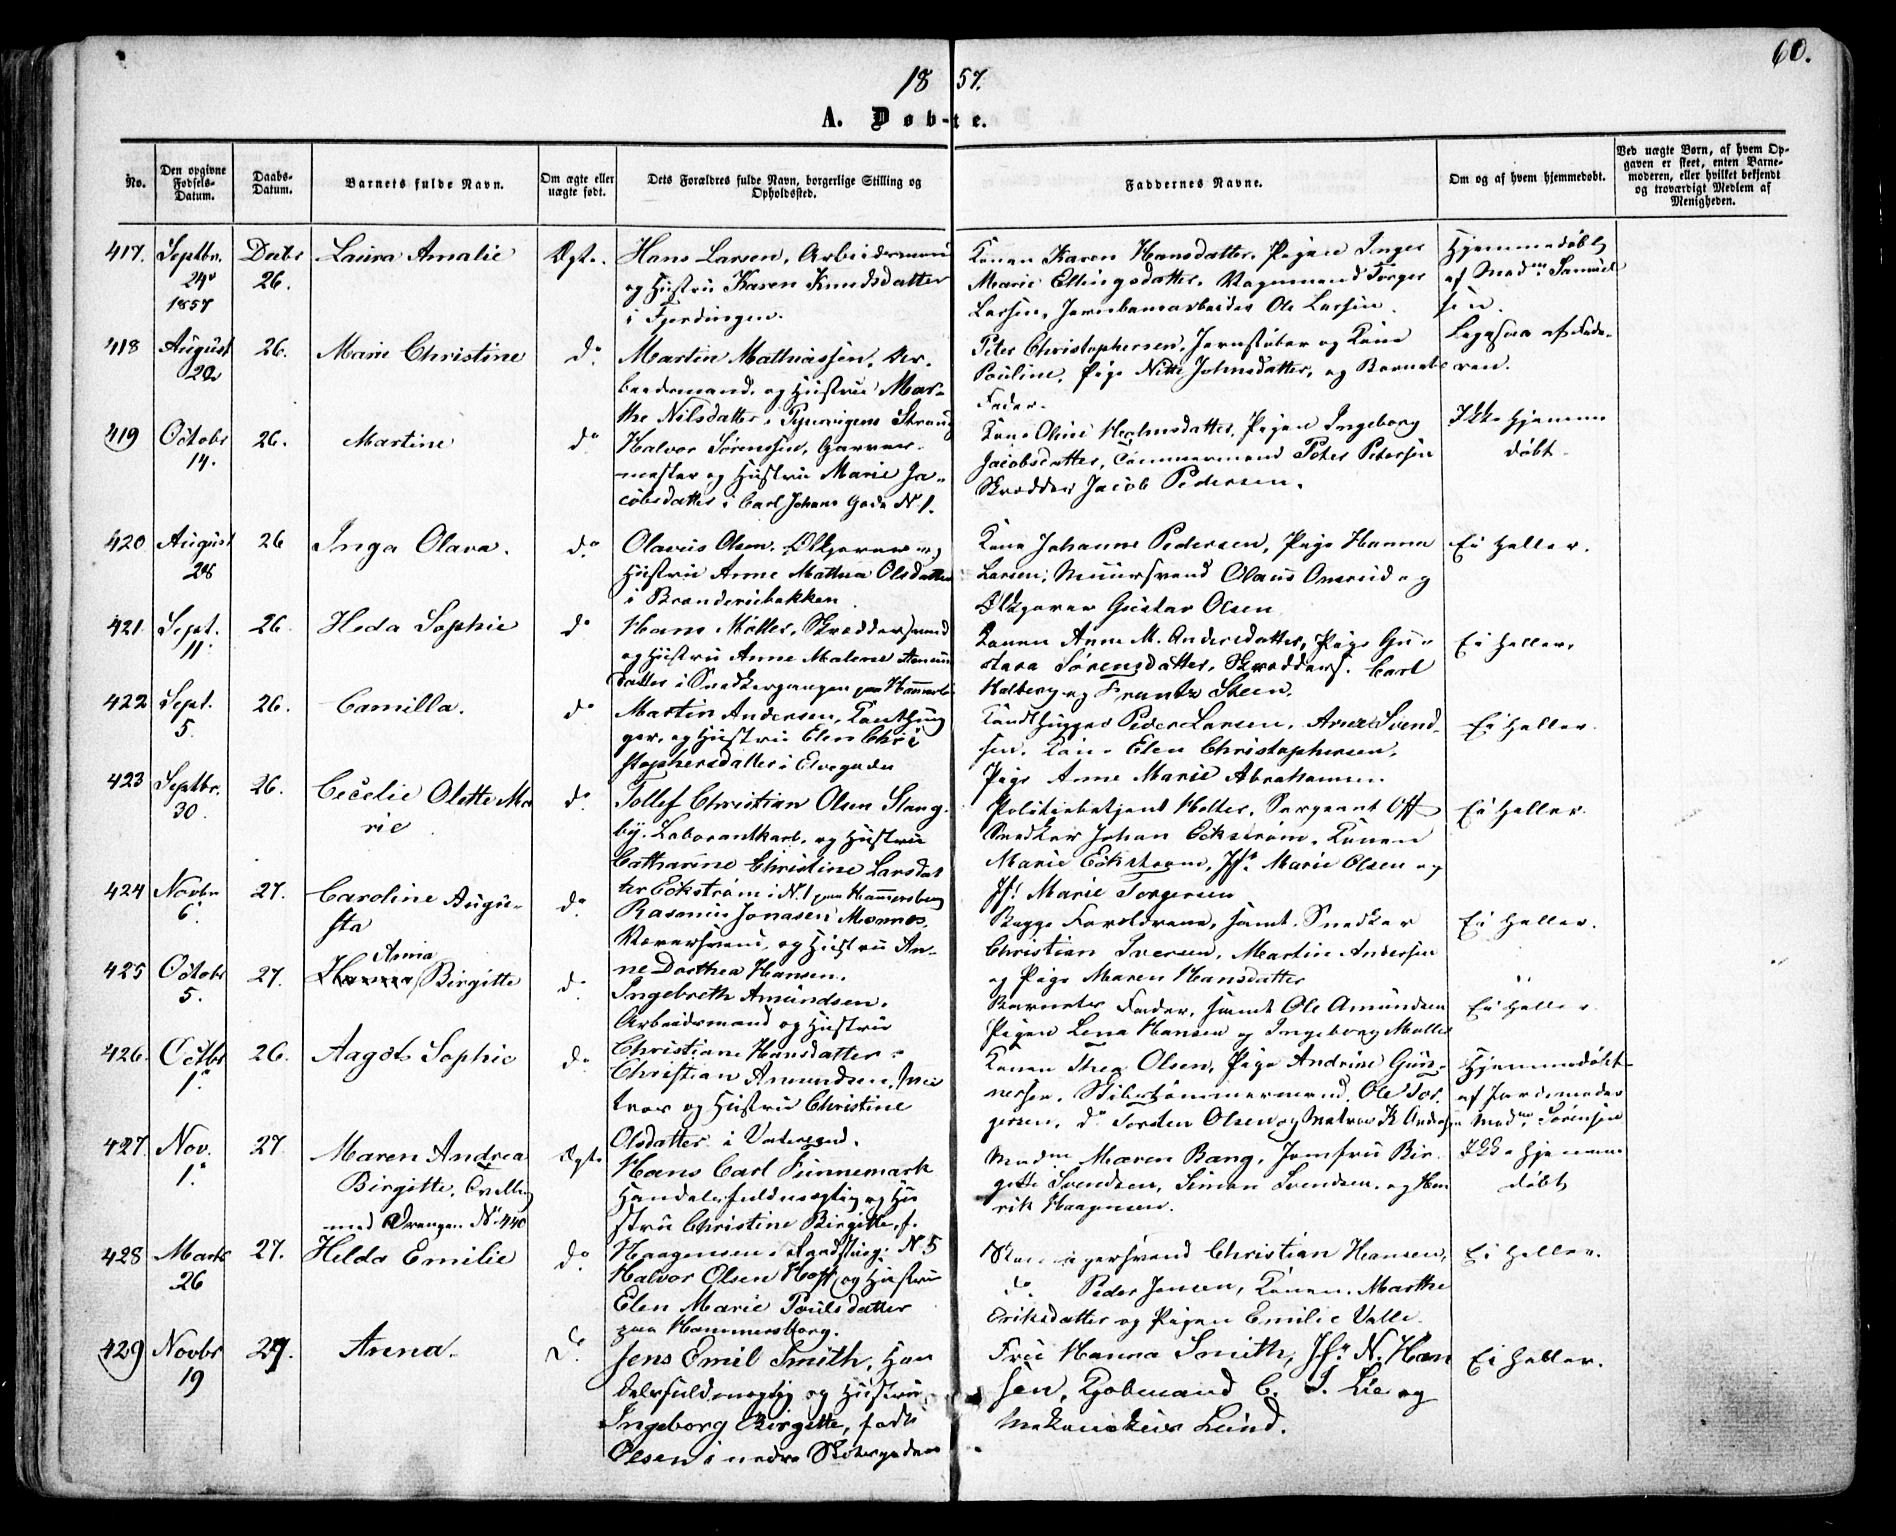 60.
1857.
A. Døbte.
No.
Den opgivne Fødsels-Datum.
Daabs-Datum.
Barnets fulde Navn.
Om ægte eller uægte født.
Dets Forældres fulde Navn, borgerlige Stilling og Opholdssted.
Faddernes Navne.
Om og af hvem hjemmedøbt.
Ved uægte Børn, af hvem Opgaven er skeet, enten Barnemoderen, eller hvilket bekjendt og troværdigt Medlem af Menigheden.
417. Septbr. 24 1857
Decbr 26.
Laura Amalie
Ægte.
Hans Larsen, Arbeidsmand
og Hustru Karen Knudsdatter
i Fjerdingen.
Konen Karen Hansdatter, Pigen Inger
Marie Ellingsdatter, Vognmand Torger
Larsen, Jernbanearbeider Ole Larsen.
Hjemmedøbt
af Madm Samuel
sen.
418 August 20
26.
Marie Christine
do
Martin Mathiassen, Ar-
beidsmand, og Hustru Mar-
the Nilsdatter i Pipervigens Strand
Peter Christophersen, Jernstøber og Kone
Pauline, Pige Nille Johnsdatter, og Barnets
Fader.
Ligesaa af Fade-
ren.
419 Octobr 14.
26.
Martine
do
Halvor Sørenssen, Garver-
mester og Hustru Marie Ja-
cobsdatter i Carl Johans Gade N 1.
Kone Oline Holmsdatter, Pigen Ingeborg
Jacobsdatter, Tømmermand Peter Petersen
Skrædder Jacob Pedersen.
Ikke hjemme
døbt
420 August 28
26
Inga Olava.
do
Olavus Olsen, Ølkjører og
Hustru Anne Mathea Olsdatter
i Brænderiebakken
Kone Johanne Pedersen, Pige Hanna
Larsen, Muursvend Olaus Omsrud og
Ølkjører Gustav Olsen
Ei heller.
421. Sept. 11
26
Heda Sophie
do
Hans Møller, Skræddersvend
og Hustru Anne Malene Amund
datter i Snedkergangen paa Hammersb
Konen Anne M. Andersdatter, Pige Gu-
stava Sørensdatter, Skrædders. Carl
Holberg og Frantz Steen.
Ei heller.
422 Sept. 5.
26.
Camilla.
do
Martin Andersen, Tømhug
ger, og Hustru Elen Chri
stophersdatter i Elvegaden
Peder Larsen, Arne Svend-
sen, Kone Elen Christophersen,
Pige Anne Marie Abrahamsen.
Ei heller.
423 Septbr. 30.
26.
Cecelie Olette Ma
rie
do
Tollef Christian Olsen Slang-
by. Laborantkarl, og Hustru
Catharine Christine Larsdat
ter Eckstrøm i N. 1 paa Hammersborg
Politiebetjent Holter, Sergeant Off
Snedker Johan Eckstrøm, Konen
Marie Eckstrøm, Jfr. Marie Olsen og
Jfr. Marie Torgersen
Ei heller.
424 Novbr 6.
27.
Caroline Augu-
sta
do.
Rasmus Jonasen Monnes,
Væversvend, og Hustru An-
ne Dorthea Hansen.
Begge Forældrene, samt Snedker
Christian Iversen, Martin Andersen
og Pige Maren Hansdatter
Ei heller.
425 Octobr 5.
27.
Anna
Hanna Birgitte
do
Ingebreth Amundsen.
Arbeidsmand og Hustru
Christiane Hansdatter.
Barnets Fader, samt Ole Amundsen
Pigen Lena Hansen og Ingeborg Møller
Ei heller
426. Octbr 1.
26.
Aagot Sophie
do
Christian Amundsen,
og Hustru Christine
Olsdatter i Vaterland.
Konen Thea Olsen, Pige Andrine Gun-
nersen. Skibstømmermand, Ole Tor
gersen, do Torsten Olsen og Matros K Anders
Hjemmedøbt
af Jordemoder
Madm Sørensen
427. Nov. 1.
27.
Maren Andrea
Birgitte, Tvilling
med Drengen N. 440
Ægte
Hans Carl Finnemark
Handelsfuldmægtig og Hu
stru Christine Birgitte, f.
Haagensen i N. 5
Madm Maren Bang, Jomfru Bir-
gitte Svendsen, Simon Svendsen, og Hen
rik Haagensen.
Ikke hjemme
døbt
428 Marts 26
27.
Helda Emilie
do
Halvor Olsen Hoff, og Hustru
Elen Marie Poulsdatter
paa Hammersborg.
Christian Hansen,
do. Peder Jensen, Konen. Marthe
Eriksdatter og Pigen Emilie Valle.
Ei heller.
429 Novbr 19
27.
Arena.
do
Jens Emil Smith, Han
delsfuldmægtig og Hustru
Ingeborg Birgitte, født
Olsen i nedre Slotsgaden
Fru Hanna Smith, Jfr. N. Han
sen, Kjøbmand C. J. Lie og
Mekanikus Lund.
Ei heller.